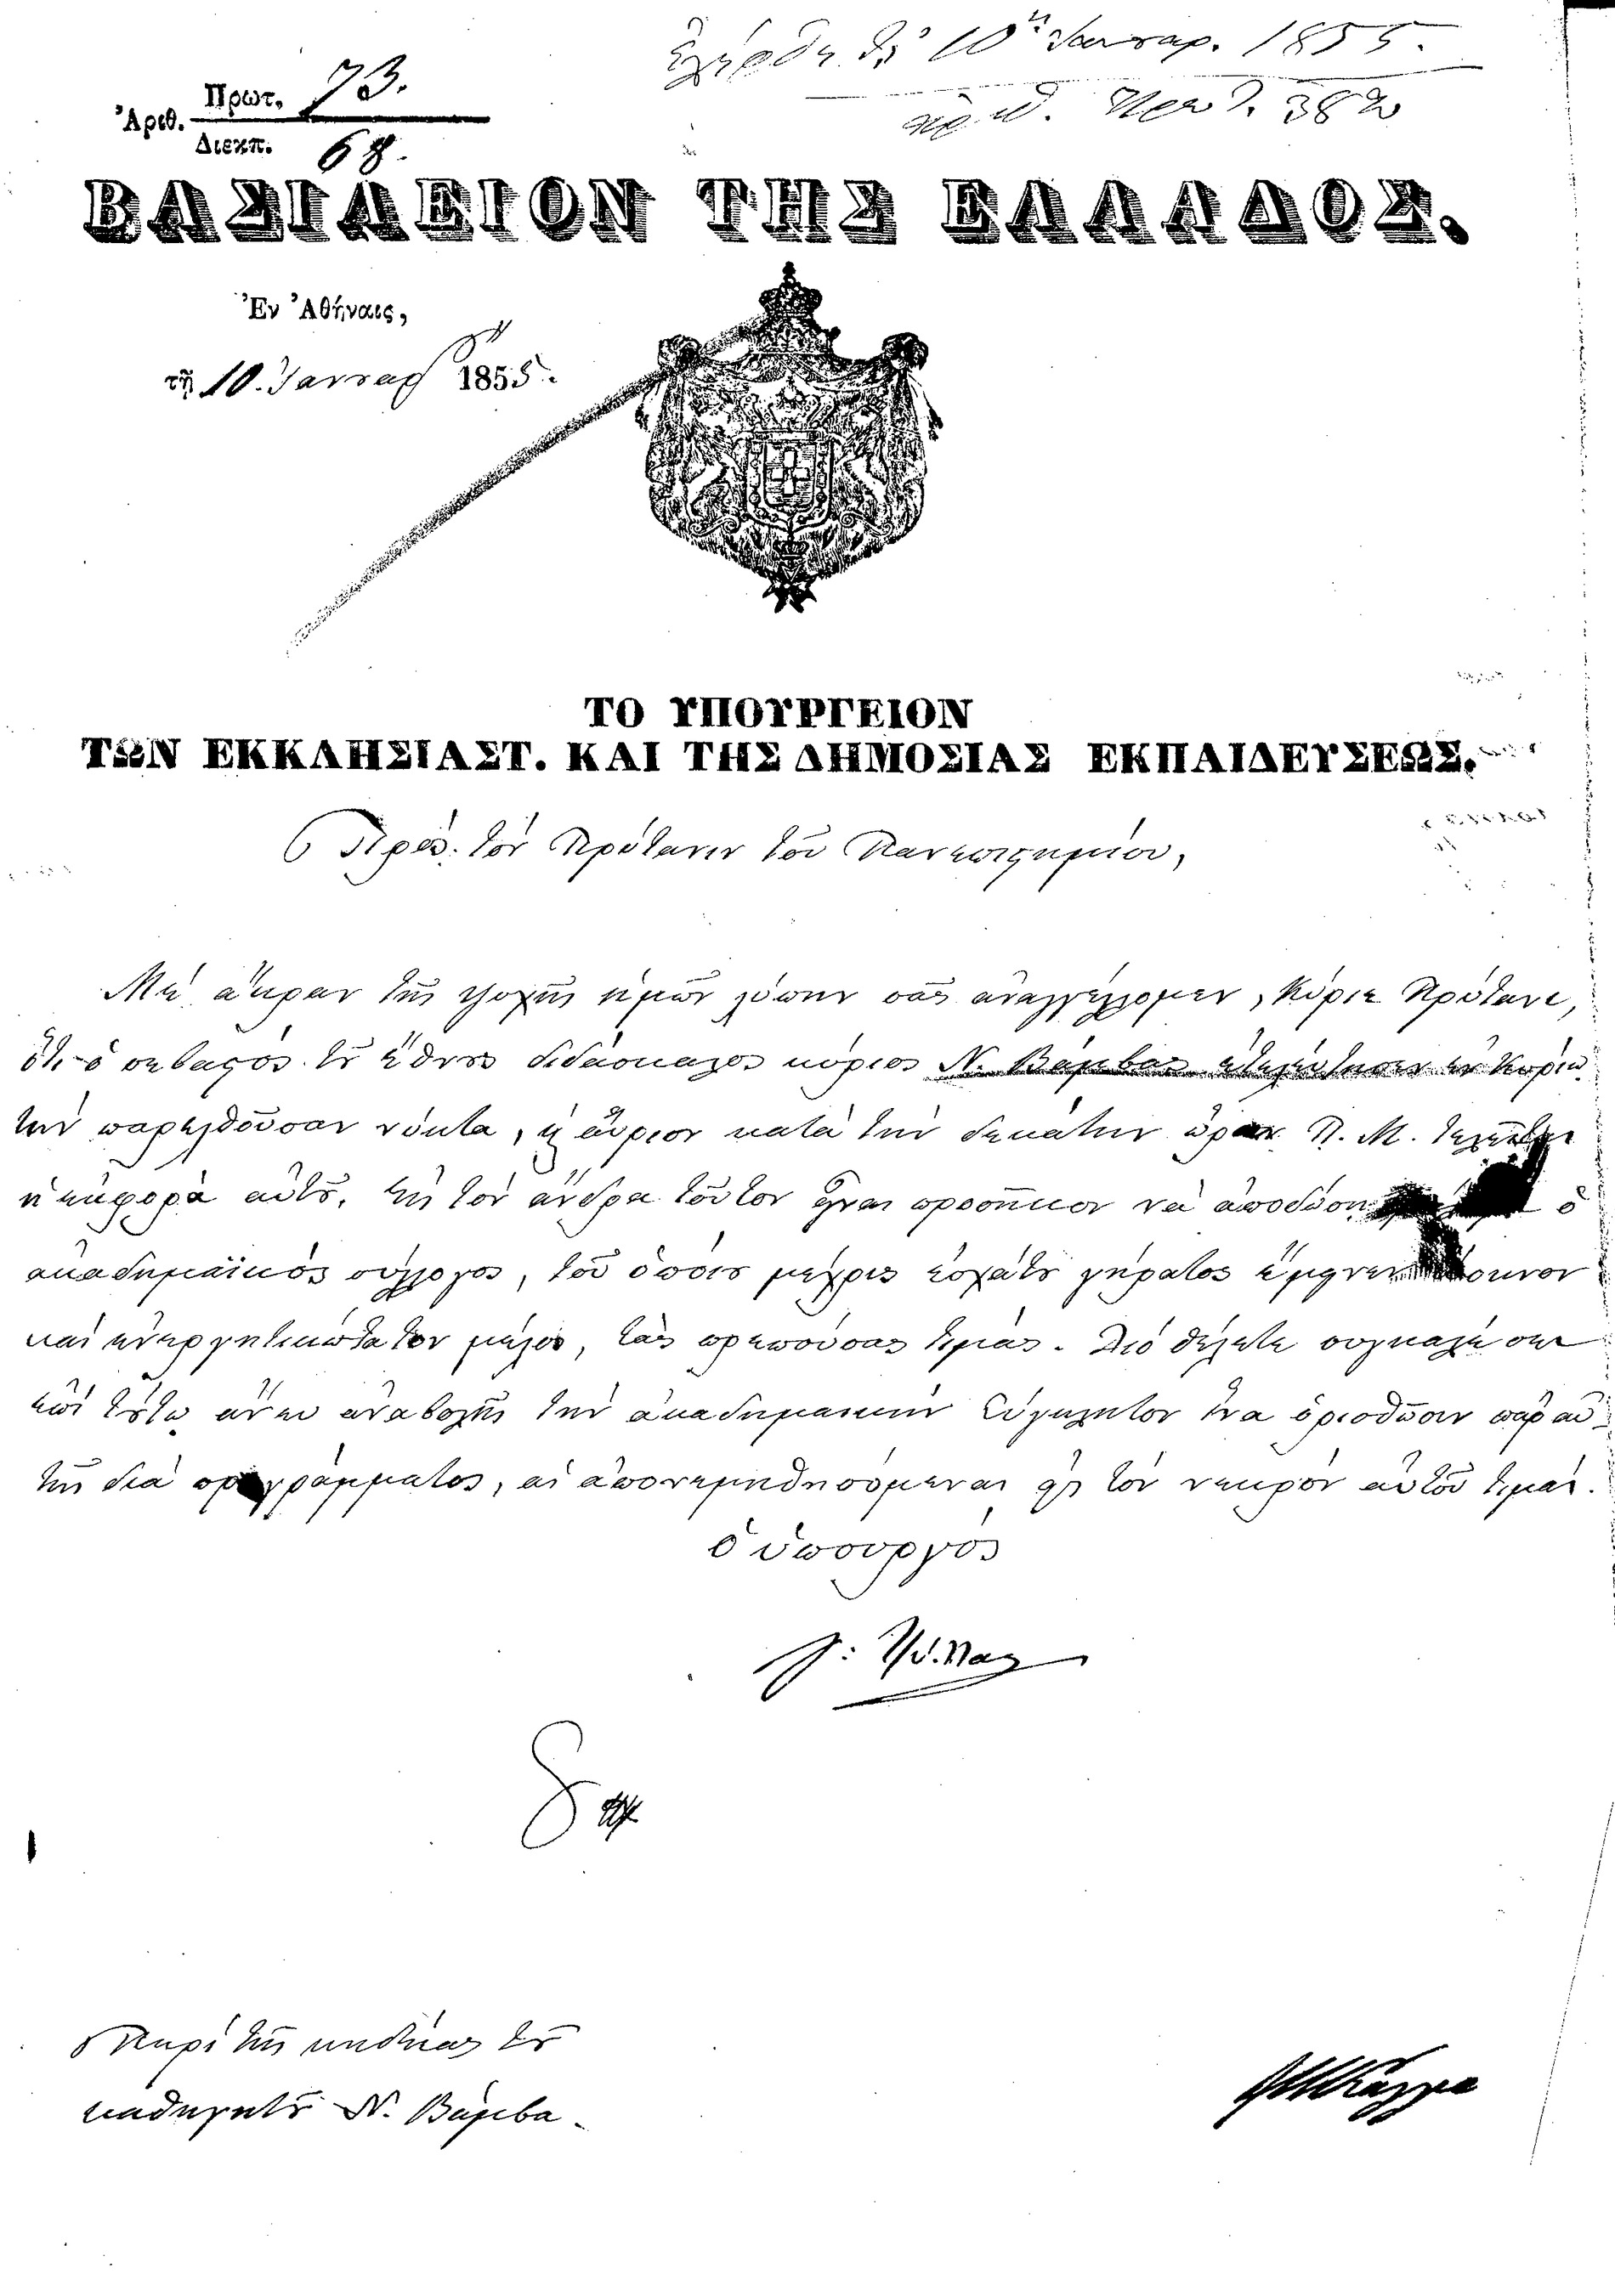 ἐλήφθη τῇ 10ῃ Ἰανουαρ. 1855.
Πρωτ. 73.
Ἀριθ.
Διεκπ. 68.
ΒΑΣΙΛΕΙΟΝ ΤΗΣ ΕΛΛΑΔΟΣ.
Ἐν Ἀθήναις,
τῇ 10. Ἰανουαρ 1855.
ΤΟ ΥΠΟΥΡΓΕΙΟΝ
ΤΩΝ ΕΚΚΛΗΣΙΑΣΤ. ΚΑΙ ΤΗΣ ΔΗΜΟΣΙΑΣ ΕΚΠΑΙΔΕΥΣΕΩΣ.
Πρὸς τὸν Πρύτανιν τοῦ Πανεπιστημίου,
Μὲ ἄκραν τῆς ψυχῆς ἡμῶν λύπην σᾶς ἀναγγέλλομεν, Κύριε Πρύτανι,
ὅτι ὁ σεβαστὸς τȣ͂ ἔθνȣς διδάσκαλος κύριος Ν. Βάμβας ἐτελεύτησεν ἐν Κυρίῳ
τὴν παρελθοῦσαν νύκτα, ἡ αὔριον κατὰ τὴν δεκάτην ὥραν Π. Μ. τελεῖται
ἡ ἐκφορὰ αὐτȣ͂. Εἰς τὸν ἄνδρα τοῦτον εἶναι προσῆκον νὰ ἀποδώσῃ ὁ
ἀκαδημαϊκὸς σύλλογος, τοῦ ὁποίȣ μέχρις ἐσχάτȣ γήρατος ἔμεινεν
καὶ ἐνεργητικώτατον μέλος, τὰς πρεπούσας τιμάς. Διὸ θέλετε συγκαλέσει
ἐπὶ τȣ́τῳ ἄνευ ἀναβολῆς τὴν ἀκαδημαικὴν Σύγκλητον ἵνα ὁρισθῶσιν παρ' αὐ-
τῆς διὰ προγράμματος, αἱ ἀπονεμηθησόμεναι εἰς τὸν νεκρὸν αὐτοῦ τιμαί.
ὁ ὑπουργὸς
Γ: Ψύλλας
Περὶ τῆς κηδείας τȣ͂
καθηγητȣ͂ Ν. Βάμβα.